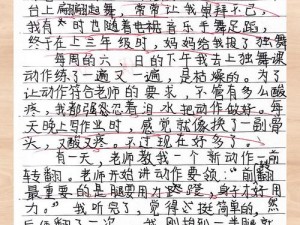 台上翩翩起舞，常常让我崇拜不已，
我有时也随着电视音乐手舞足蹈，
终于在上三年级时，妈妈给我报了独舞
每周的六日的下午我去上独舞班
动作练了一遍又一遍，是枯燥的。为了
让动作符合老师的要求，不管有多么酸
疼，我都强忍着泪水把动作做好。每
天晚上写作业时，感觉就像换了一副骨
头，又酸又疼。不过现在好多了。
有一天，老师教我一个新动作—前
转翻。老师开始讲动作要领：“前翻
最重要的是腿要用力蹬，身子才好用
力。”我听完了，觉得还挺简单的，然